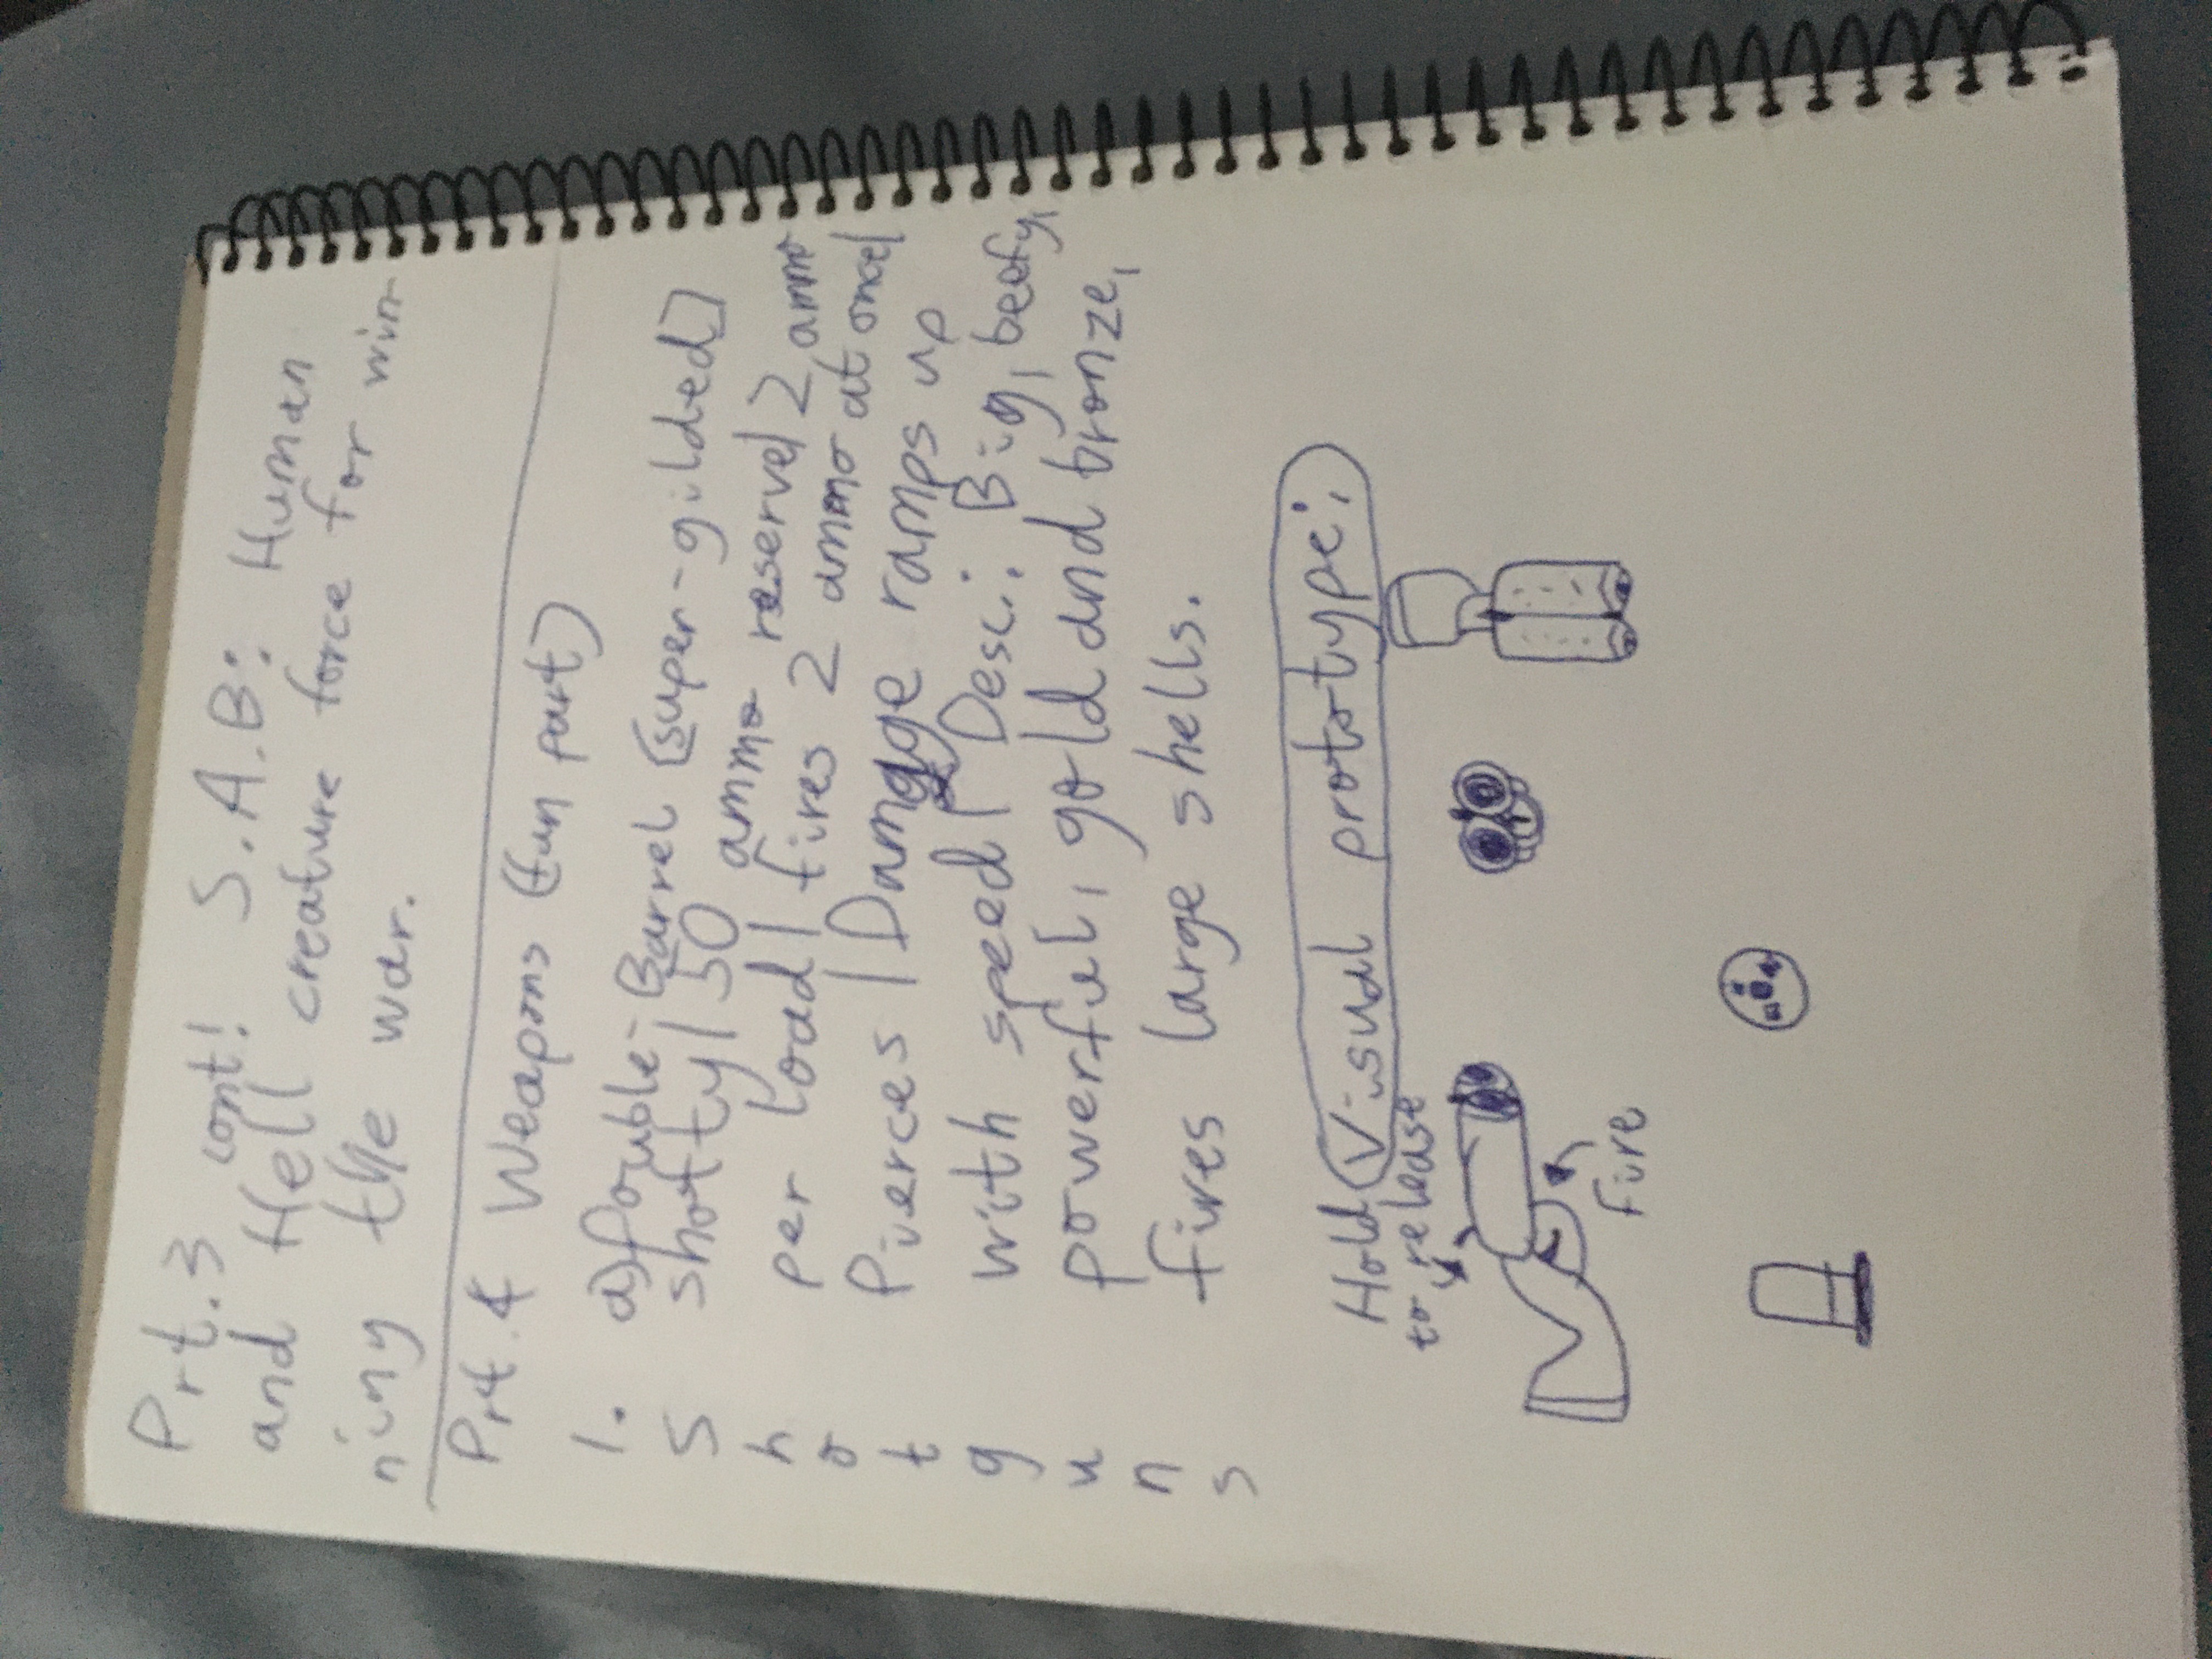 Prt.3 cont! S.A.B: Human
and Hell creature force for win-
ning the war.
Prt.4 Weapons (fun part)
1. a) Double-Barrel [super-gilded]
Shotguns
shotty| 50 ammo reserve| 2 ammo
per load| fires 2 ammo at once|
Pierces | Damage ramps up
with speed| Desc.: Big, beefy,
powerful, gold and bronze,
fires large shells.
Visual prototype:
Hold
to release
Fire